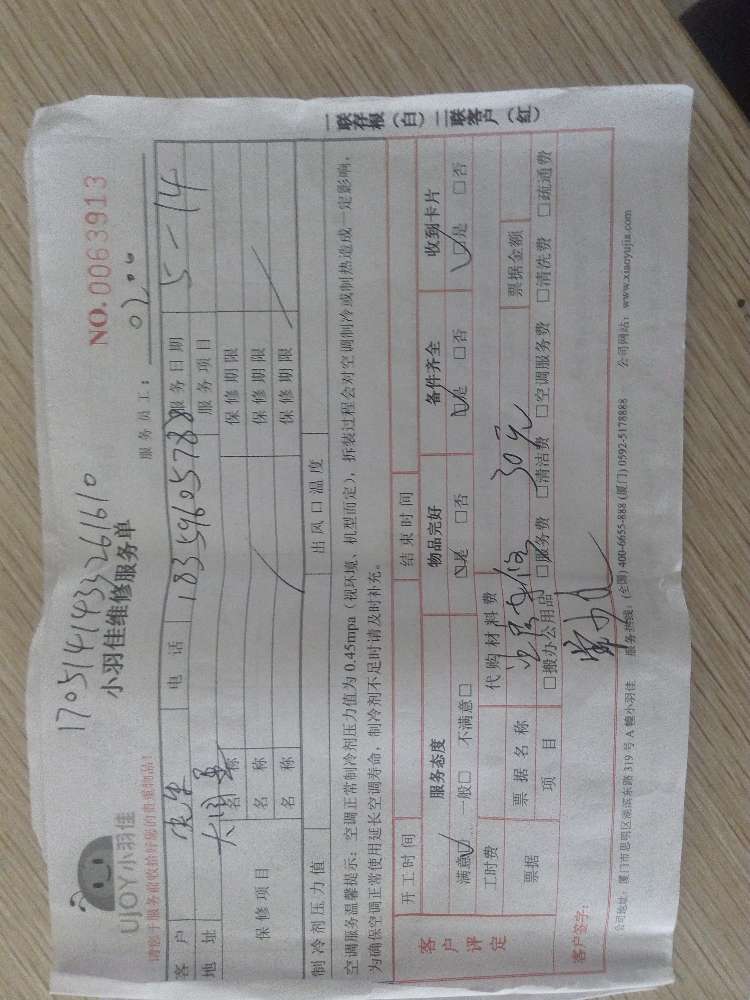 1705141433261610
UJOY小羽佳
小羽佳维修服务单
NO.0063913
请您于服务前收拾好您的贵重物品!
服务员工:
客户 电话 服务日期 5-14
地址 大润 服务项目
保修项目 名称 保修期限
名称 保修期限
名称 保修期限
制冷剂压力值 出风口温度
空调服务温馨提示:空调正常制冷剂压力值为0.45mpa(视环境、机型而定),拆装过程会对空调制冷或制热造成一定影响,
为确保空调正常使用延长空调寿命,制冷剂不足时请及时补充。
开工时间 结束时间
客户评定 服务态度 物品完好 备件齐全 收到卡片
满意□ 一般□ 不满意□ □是 □否 □是 □否 □是 □否
工时费 代购材料费
票据 票据名称 30元 票据金额
项目 □搬办公用品 □服务费 □清洁费 □空调服务费 □清洗费 □疏通费
客户签字:
公司地址:厦门市思明区湖滨东路319号A幢小羽佳 服务热线:(全国)400-6655-888(厦门)0592-5178888 公司网站:www.xiaoyujia.com
一联存根(白)二联客户(红)